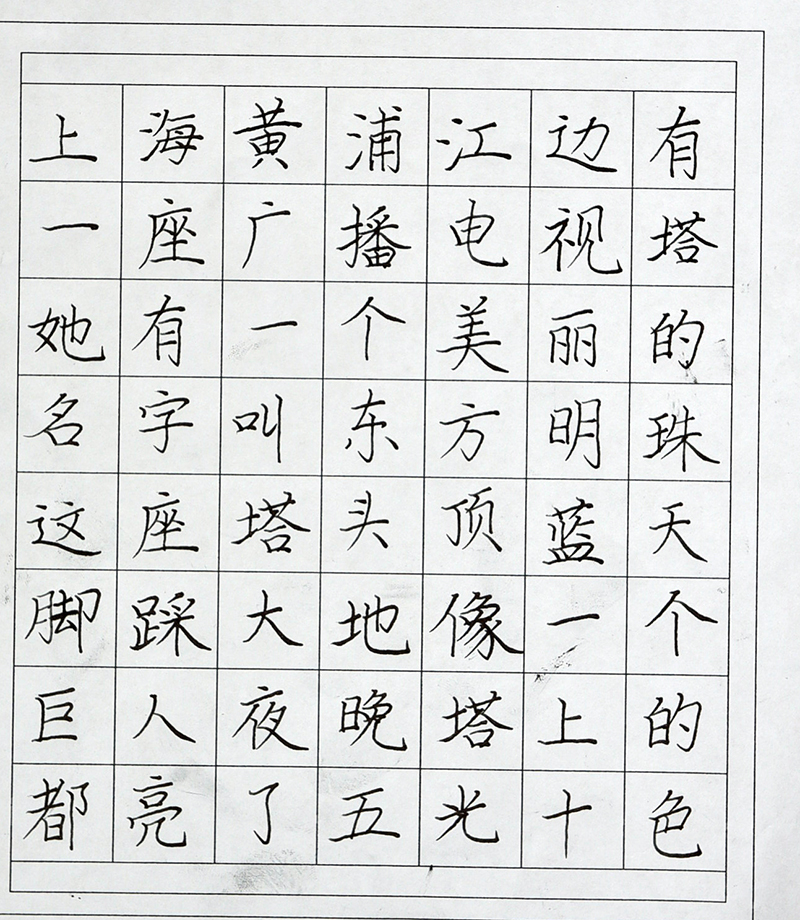 上海黄浦江边有
一座广播电视塔
她有一个美丽的
名字叫东方明珠
这座塔头顶蓝天
脚踩大地像一个
巨人夜晚塔上的
都亮了五光十色